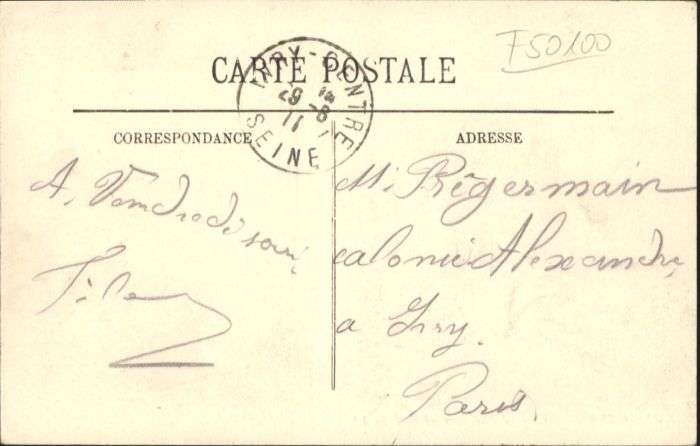 F50100
CARTE POSTALE
IVRY-CENTRE
29 -8
11
SEINE
CORRESPONDANCE
A. Vendredi soir
ADRESSE
M. Prégermain
colonie Alexandre
a Ivry.
Paris.